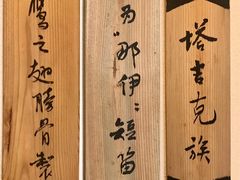 塔吉克族
为"那伊"短笛
鹰之翅膀骨製